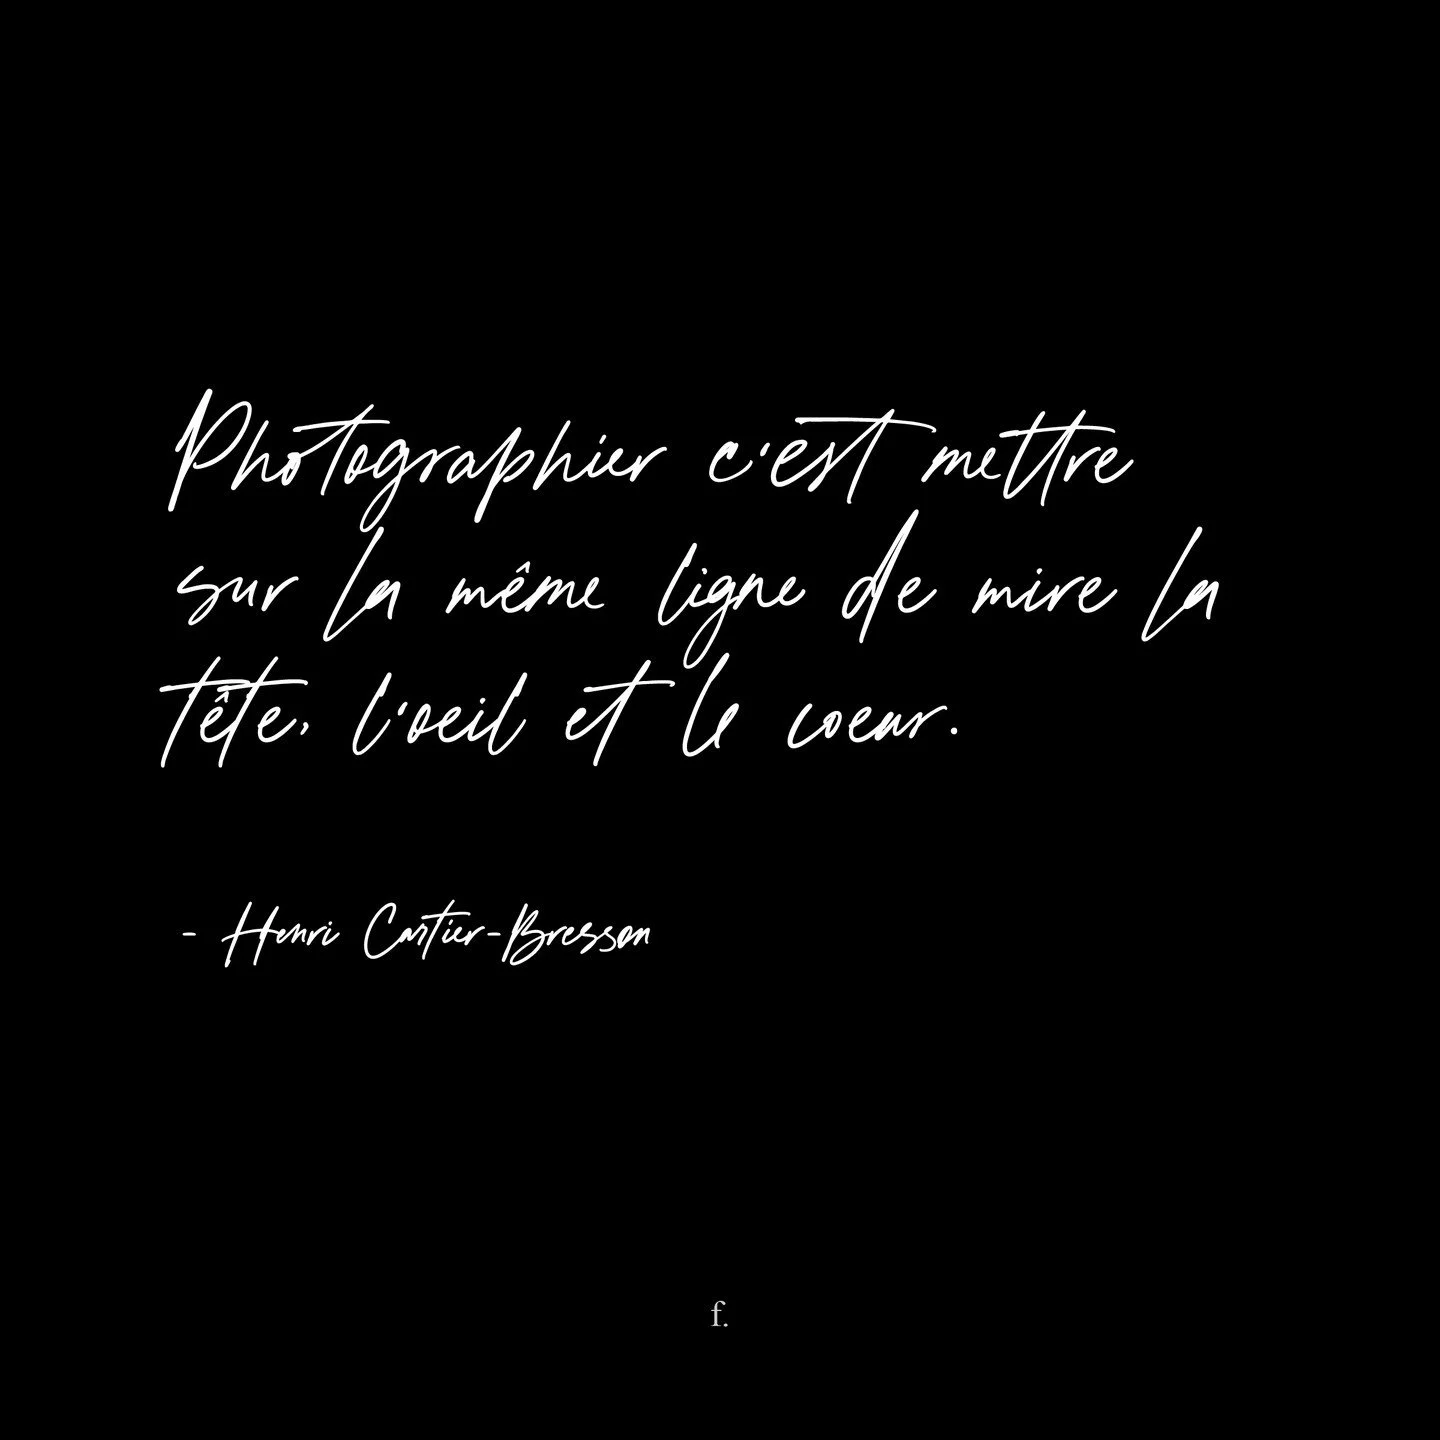 Photographier c'est mettre
sur la même ligne de mire la
tête, l'oeil et le coeur.
- Henri Cartier-Bresson
f.